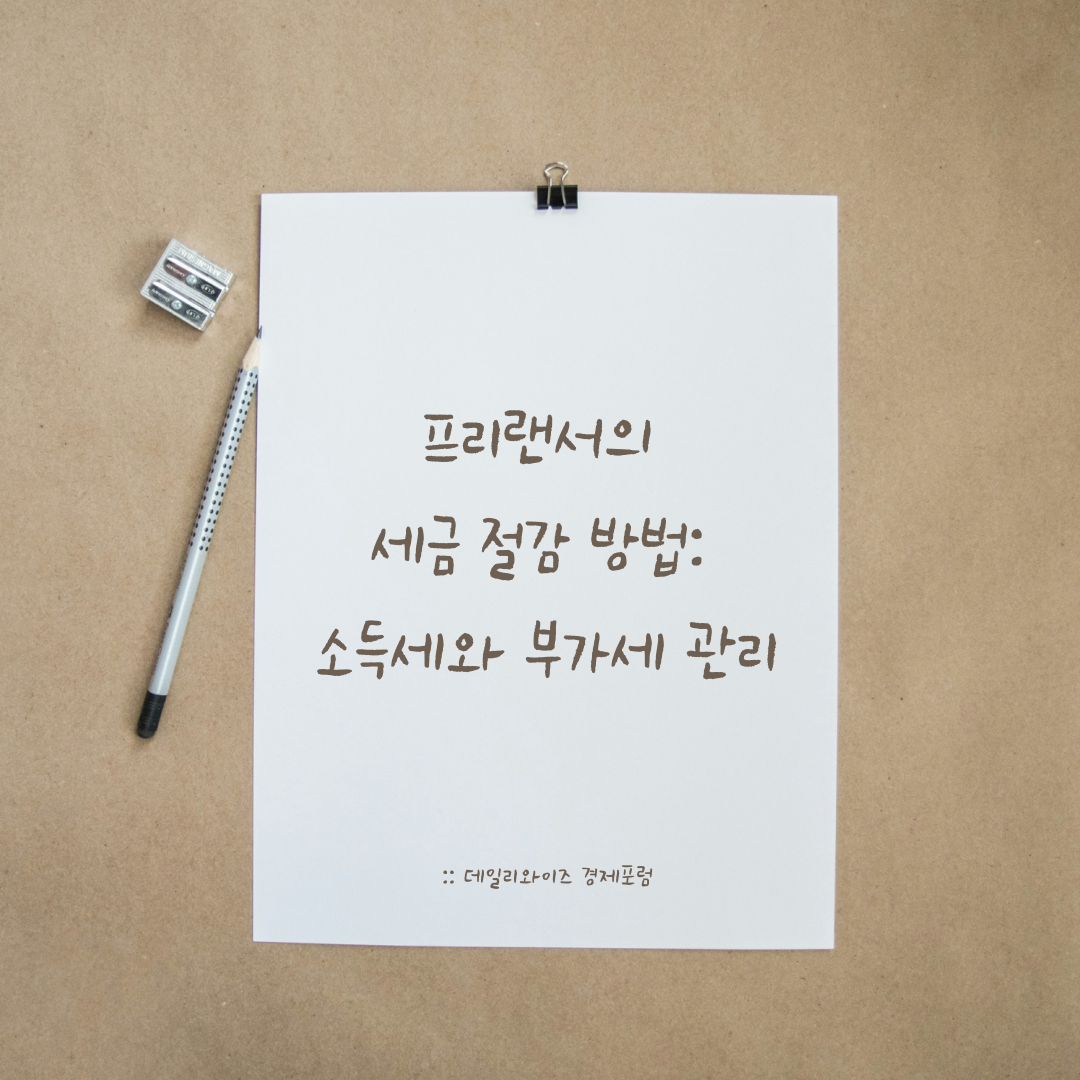 프리랜서의
세금 절감 방법:
소득세와 부가세 관리
:: 데일리와이즈 경제포럼